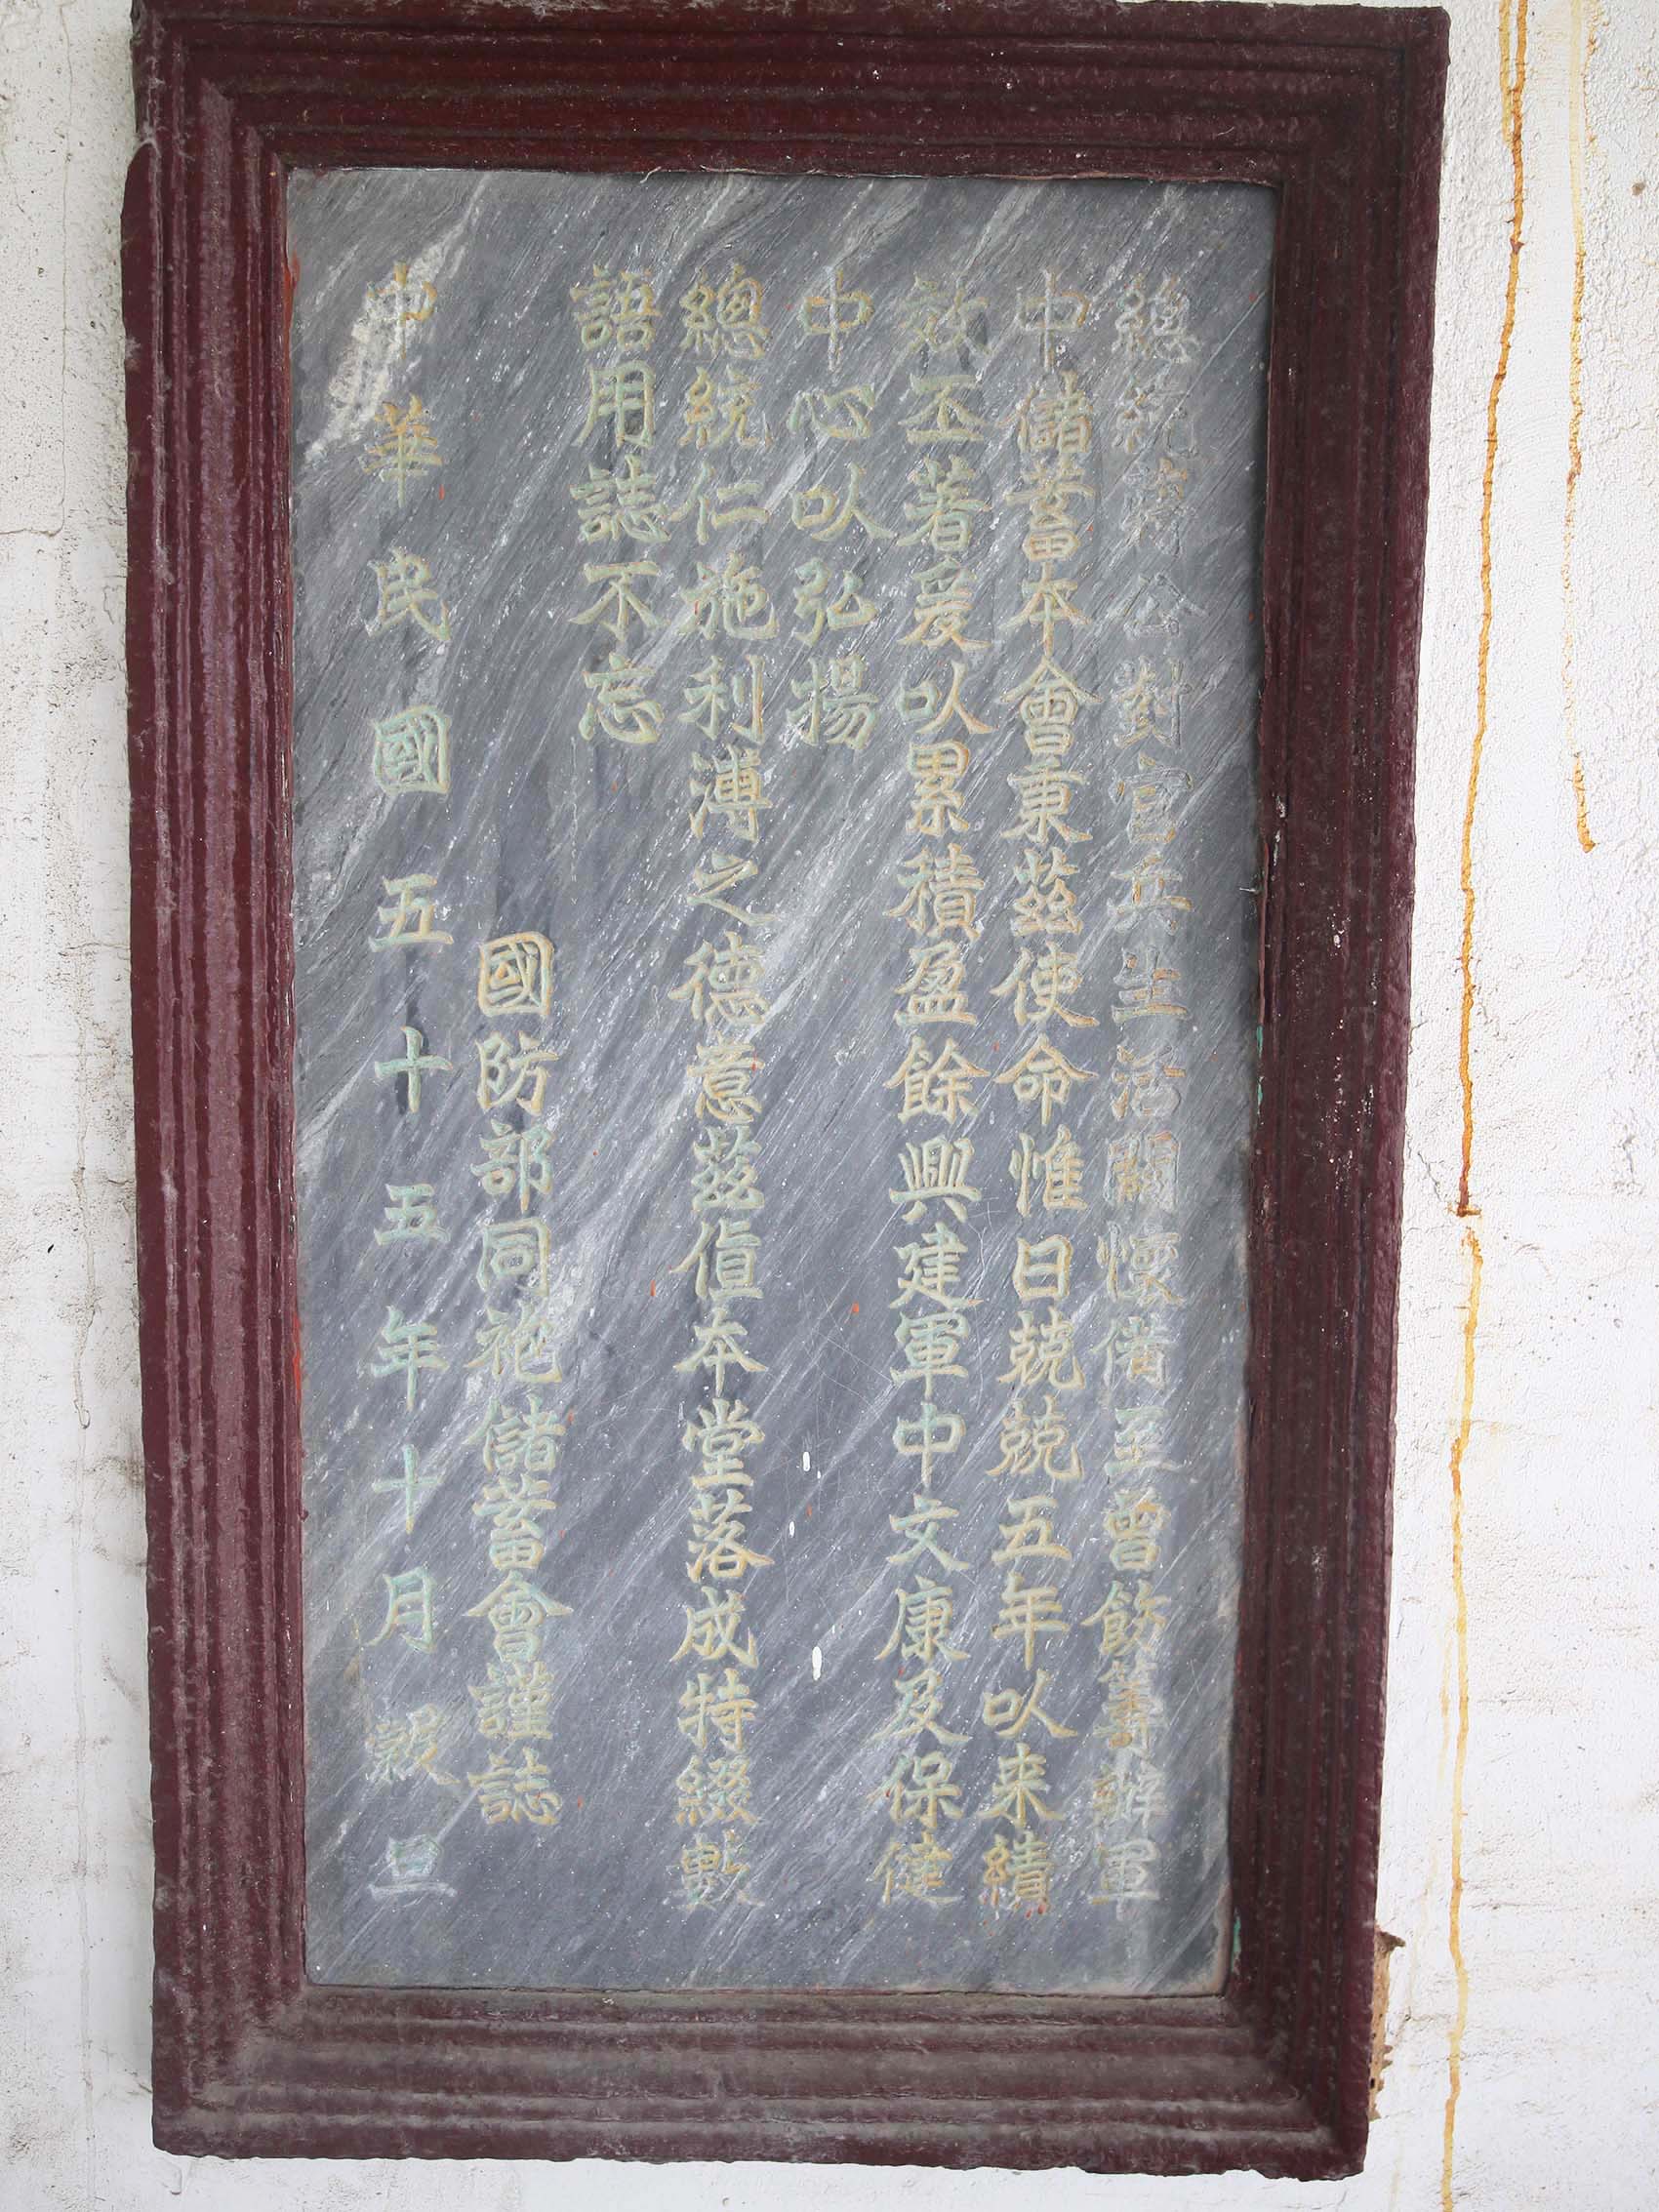 總統蔣公對官兵生活關懷備至曾飭籌辦軍
中儲蓄本會秉茲使命惟日兢兢五年以來績
效丕著爰以累積盈餘興建軍中文康及保健
中心以弘揚
總統仁施利溥之德意茲值本堂落成特綴數
語用誌不忘
國防部同袍儲蓄會謹誌
中華民國五十五年十月穀旦